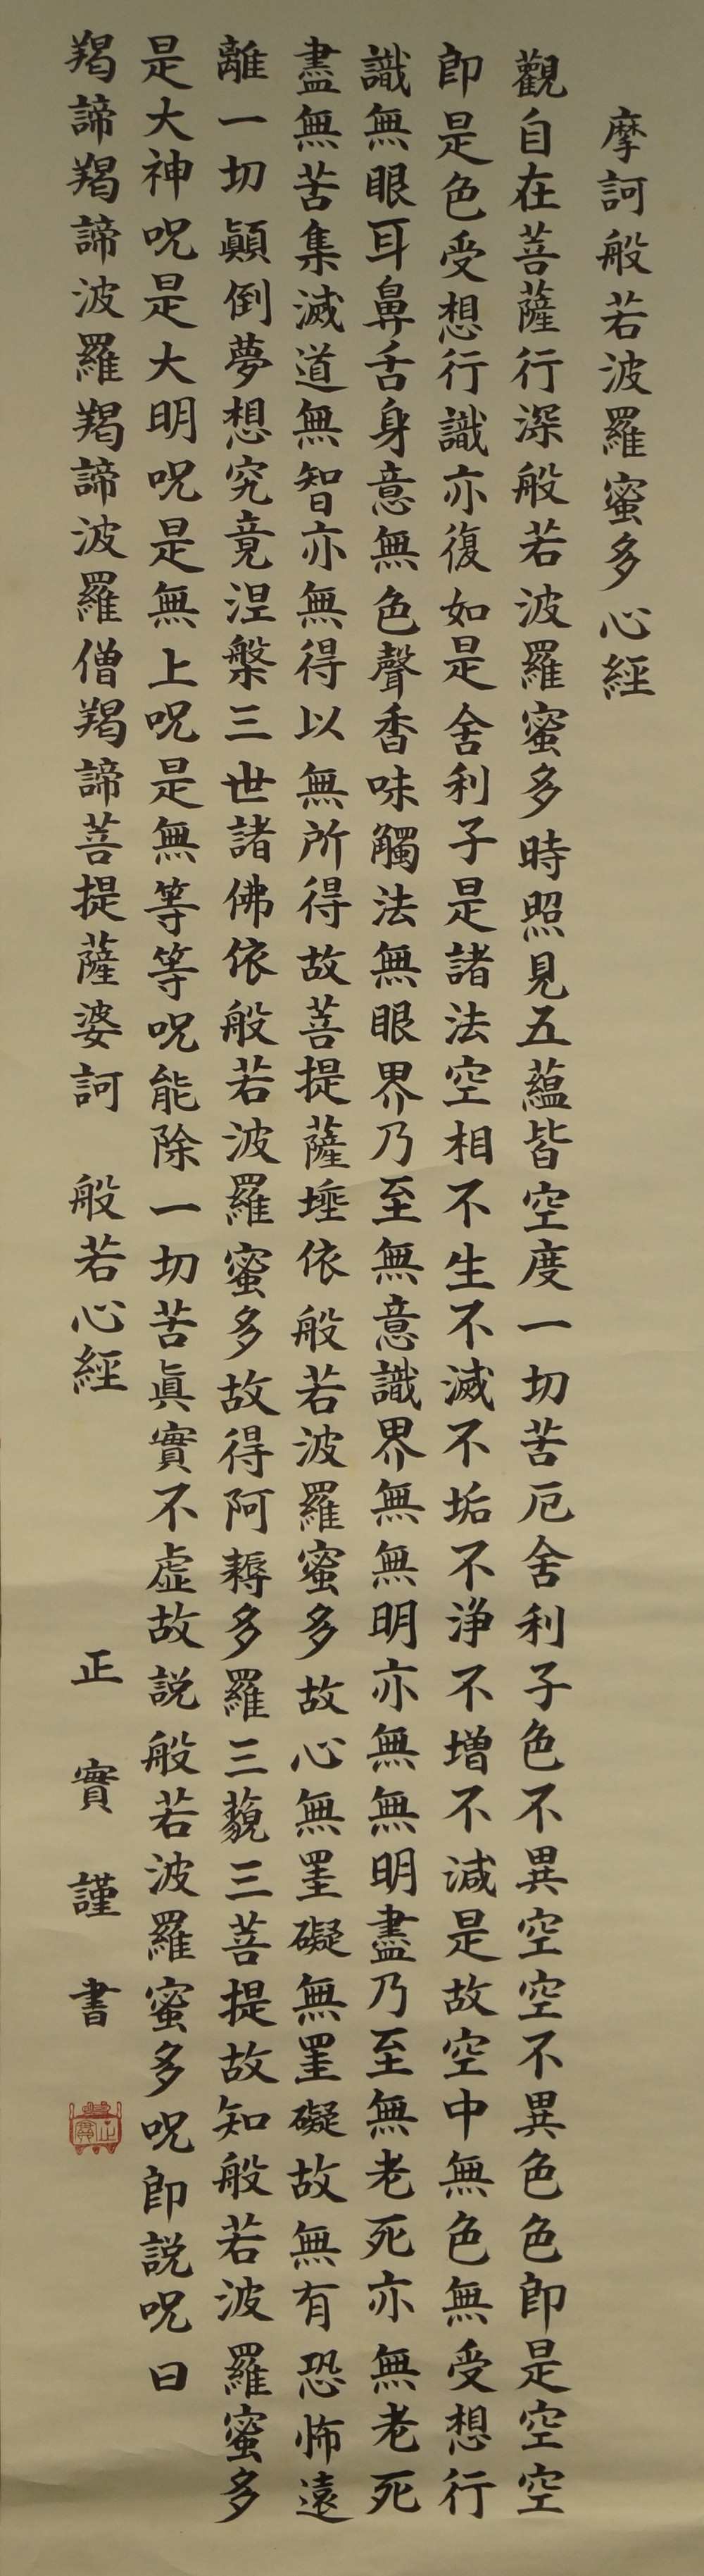 摩訶般若波羅蜜多心經
觀自在菩薩行深般若波羅蜜多時照見五蘊皆空度一切苦厄舍利子色不異空空不異色色即是空空
即是色受想行識亦復如是舍利子是諸法空相不生不滅不垢不浄不增不減是故空中無色無受想行
識無眼耳鼻舌身意無色聲香味觸法無眼界乃至無意識界無無明亦無無明盡乃至無老死亦無老死
盡無苦集滅道無智亦無得以無所得故菩提薩埵依般若波羅蜜多故心無罣礙無罣礙故無有恐怖遠
離一切顚倒夢想究竟涅槃三世諸佛依般若波羅蜜多故得阿耨多羅三藐三菩提故知般若波羅蜜多
是大神呪是大明呪是無上呪是無等等呪能除一切苦眞實不虛故説般若波羅蜜多呪即説呪曰
羯諦羯諦波羅羯諦波羅僧羯諦菩提薩婆訶 般若心經
正實謹書
正實